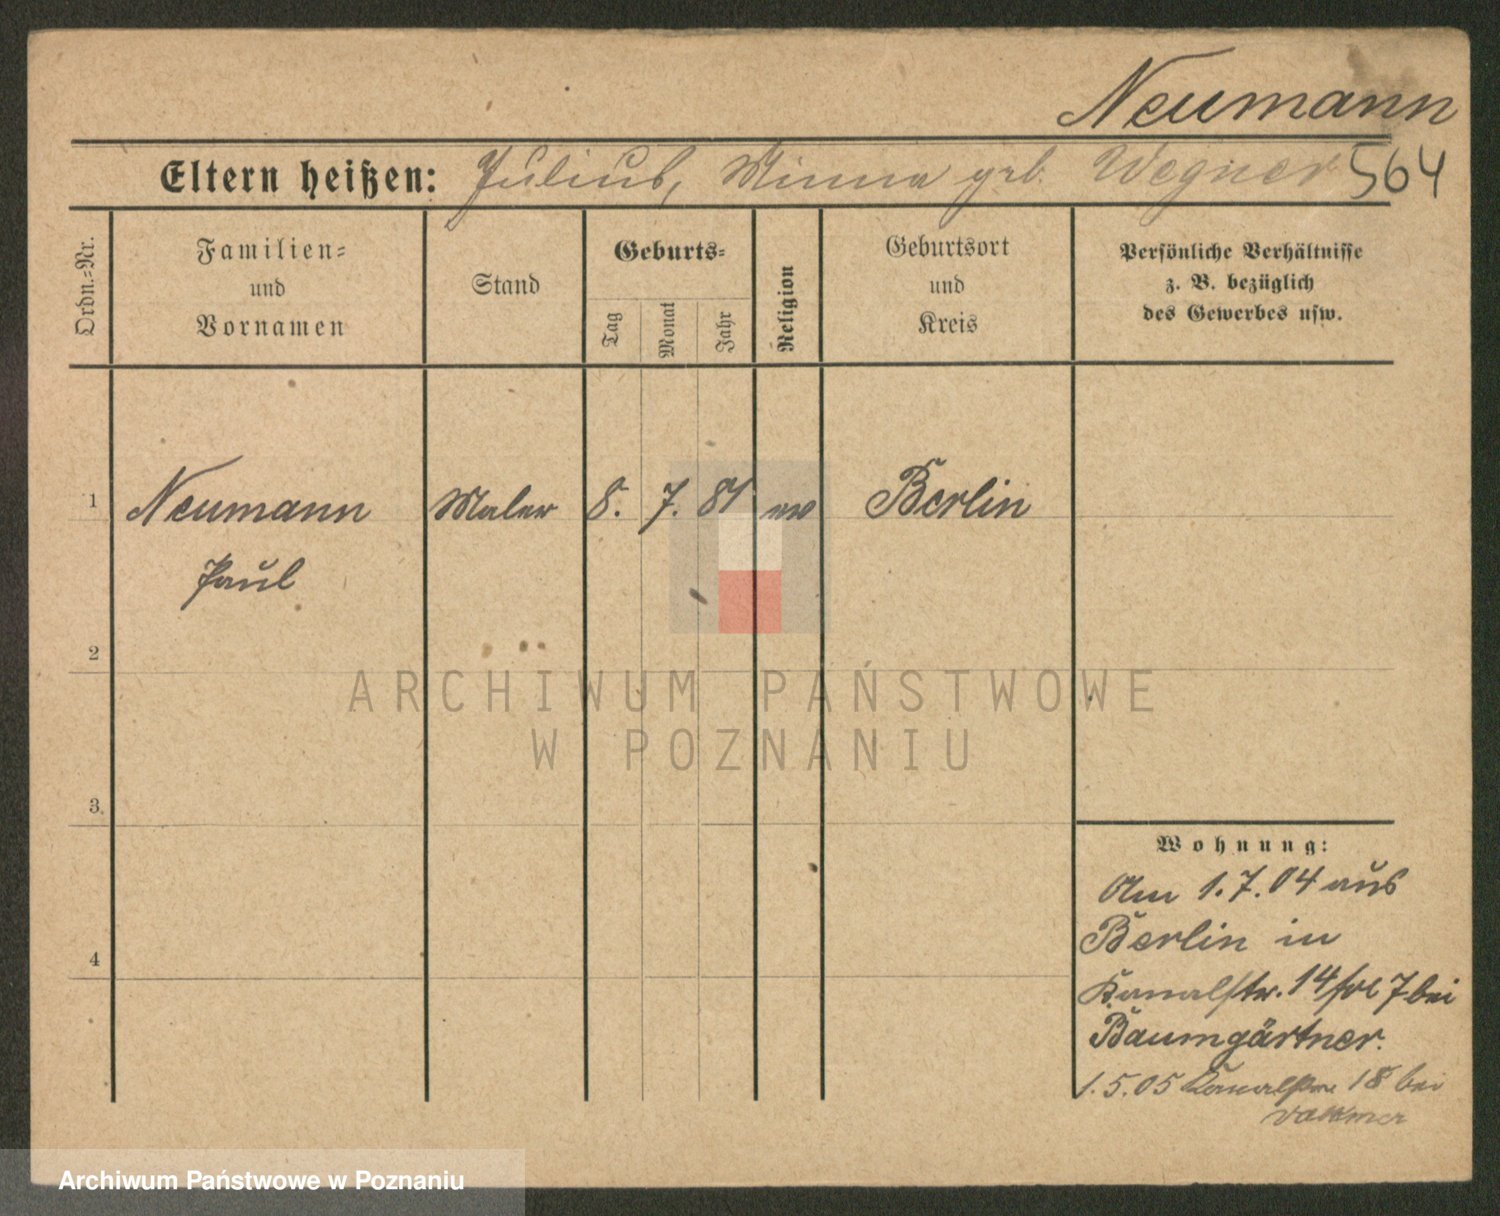 Neumann
Eltern heißen: Julius, Minna geb. Wegner 564
Ordn.-Nr.
Familien- und Vornamen
Stand
Geburts-
Tag
Monat
Jahr
Religion
Geburtsort und Kreis
Persönliche Verhältnisse
z. B. bezüglich
des Gewerbes usw.
1 Neumann Maler 8. 7. 81 ev Berlin
Paul
2
3
4
Wohnung:
Am 1.7.04 aus
Berlin in
Kanalstr. 14 7 bei
Baumgärtner.
1.5.05 Kanalstr. 18 bei
Volkmer
ARCHIWUM PAŃSTWOWE
W POZNANIU
Archiwum Państwowe w Poznaniu